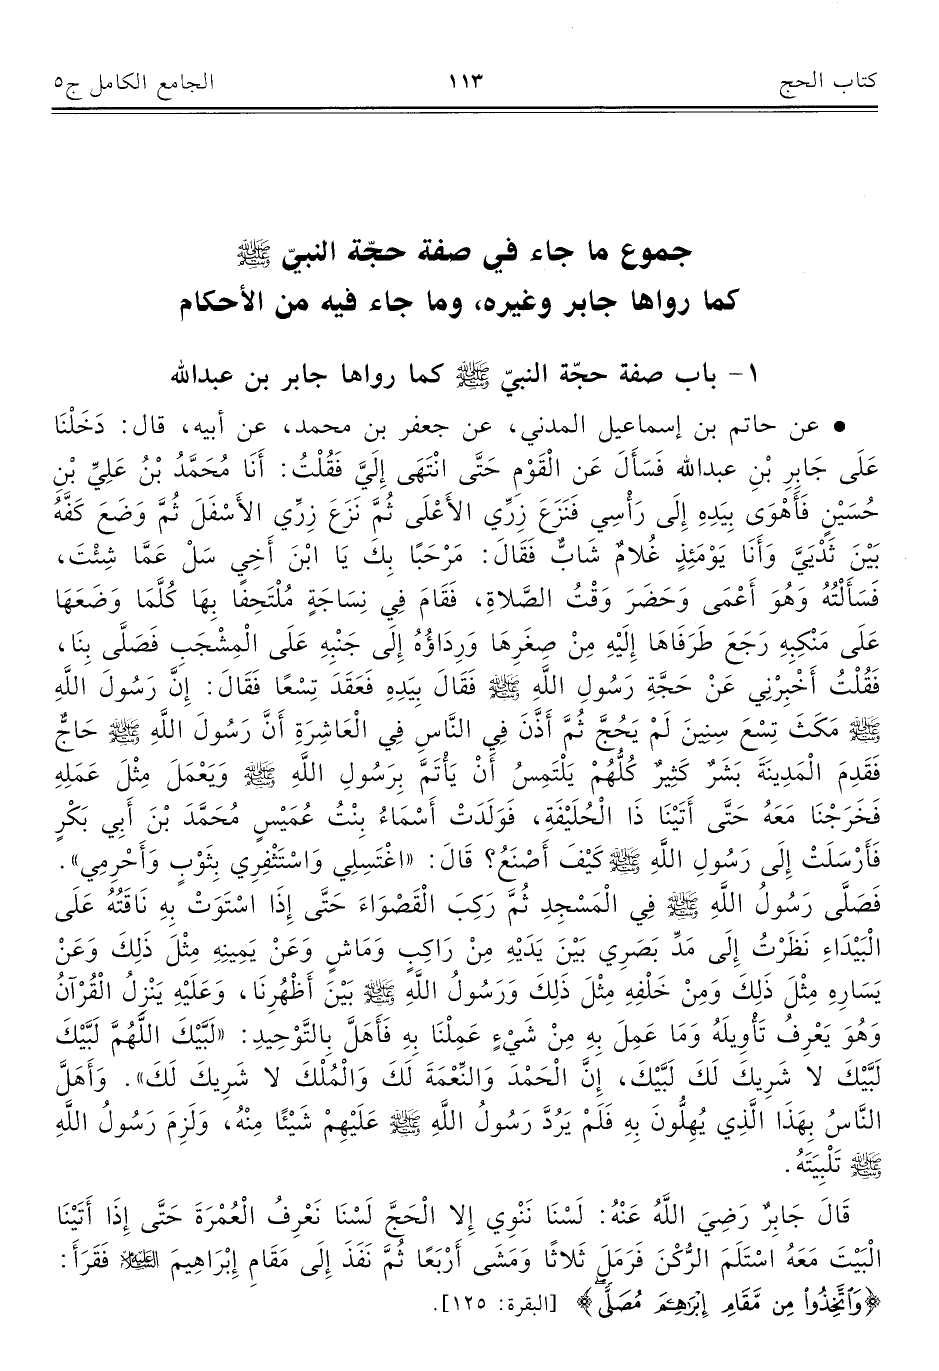 كتاب الحج ١١٣ الجامع الكامل ج٥
جموع ما جاء في صفة حجّة النبيّ ﷺ
كما رواها جابر وغيره، وما جاء فيه من الأحكام
١- باب صفة حجّة النبيّ ﷺ كما رواها جابر بن عبدالله
● عن حاتم بن إسماعيل المدني، عن جعفر بن محمد، عن أبيه، قال: دَخَلْنَا
عَلَى جَابِرِ بْنِ عبدالله فَسَأَلَ عَن الْقَوْمِ حَتَّى انْتَهَى إِلَيَّ فَقُلْتُ: أَنَا مُحَمَّدُ بْنُ عَلِيِّ بْنِ
حُسَيْنٍ فَأَهْوَى بِيَدِهِ إِلَى رَأْسِي فَنَزَعَ زِرِّي الأَعْلَى ثُمَّ نَزَعَ زِرِّي الأَسْفَلَ ثُمَّ وَضَعَ كَفَّهُ
بَيْنَ ثَدْيَيَّ وَأَنَا يَوْمَئِذٍ غُلامٌ شَابٌّ فَقَالَ: مَرْحَبًا بِكَ يَا ابْنَ أَخِي سَلْ عَمَّا شِئْتَ،
فَسَأَلْتُهُ وَهُوَ أَعْمَى وَحَضَرَ وَقْتُ الصَّلاةِ، فَقَامَ فِي نِسَاجَةٍ مُلْتَحِفًا بِهَا كُلَّمَا وَضَعَهَا
عَلَى مَنْكِبِهِ رَجَعَ طَرَفَاهَا إِلَيْهِ مِنْ صِغَرِهَا وَرِدَاؤُهُ إِلَى جَنْبِهِ عَلَى الْمِشْجَبِ فَصَلَّى بِنَا،
فَقُلْتُ أَخْبِرْنِي عَنْ حَجَّةِ رَسُولِ اللَّهِ ﷺ فَقَالَ بِيَدِهِ فَعَقَدَ تِسْعًا فَقَالَ: إِنَّ رَسُولَ اللَّهِ
ﷺ مَكَثَ تِسْعَ سِنِينَ لَمْ يَحُجَّ ثُمَّ أَذَّنَ فِي النَّاسِ فِي الْعَاشِرَةِ أَنَّ رَسُولَ اللَّهِ ﷺ حَاجٌّ
فَقَدِمَ الْمَدِينَةَ بَشَرٌ كَثِيرٌ كُلُّهُمْ يَلْتَمِسُ أَنْ يَأْتَمَّ بِرَسُولِ اللَّهِ ﷺ وَيَعْمَلَ مِثْلَ عَمَلِهِ
فَخَرَجْنَا مَعَهُ حَتَّى أَتَيْنَا ذَا الْحُلَيْفَةِ، فَوَلَدَتْ أَسْمَاءُ بِنْتُ عُمَيْسٍ مُحَمَّدَ بْنَ أَبِي بَكْرٍ
فَأَرْسَلَتْ إِلَى رَسُولِ اللَّهِ ﷺ كَيْفَ أَصْنَعُ؟ قَالَ: «اغْتَسِلِي وَاسْتَثْفِرِي بِثَوْبٍ وَأَحْرِمِي».
فَصَلَّى رَسُولُ اللَّهِ ﷺ فِي الْمَسْجِدِ ثُمَّ رَكِبَ الْقَصْوَاءَ حَتَّى إِذَا اسْتَوَتْ بِهِ نَاقَتُهُ عَلَى
الْبَيْدَاءِ نَظَرْتُ إِلَى مَدِّ بَصَرِي بَيْنَ يَدَيْهِ مِنْ رَاكِبٍ وَمَاشٍ وَعَنْ يَمِينِهِ مِثْلَ ذَلِكَ وَعَنْ
يَسَارِهِ مِثْلَ ذَلِكَ وَمِنْ خَلْفِهِ مِثْلَ ذَلِكَ وَرَسُولُ اللَّهِ ﷺ بَيْنَ أَظْهُرِنَا، وَعَلَيْهِ يَنْزِلُ الْقُرْآنُ
وَهُوَ يَعْرِفُ تَأْوِيلَهُ وَمَا عَمِلَ بِهِ مِنْ شَيْءٍ عَمِلْنَا بِهِ فَأَهَلَّ بِالتَّوْحِيدِ: «لَبَّيْكَ اللَّهُمَّ لَبَّيْكَ
لَبَّيْكَ لا شَرِيكَ لَكَ لَبَّيْكَ، إِنَّ الْحَمْدَ وَالنِّعْمَةَ لَكَ وَالْمُلْكَ لا شَرِيكَ لَكَ». وَأَهَلَّ
النَّاسُ بِهَذَا الَّذِي يُهِلُّونَ بِهِ فَلَمْ يَرُدَّ رَسُولُ اللَّهِ ﷺ عَلَيْهِمْ شَيْئًا مِنْهُ، وَلَزِمَ رَسُولُ اللَّهِ
ﷺ تَلْبِيَتَهُ.
قَالَ جَابِرٌ رَضِيَ اللَّهُ عَنْهُ: لَسْنَا نَنْوِي إِلا الْحَجَّ لَسْنَا نَعْرِفُ الْعُمْرَةَ حَتَّى إِذَا أَتَيْنَا
الْبَيْتَ مَعَهُ اسْتَلَمَ الرُّكْنَ فَرَمَلَ ثَلاثًا وَمَشَى أَرْبَعًا ثُمَّ نَفَذَ إِلَى مَقَامِ إِبْرَاهِيمَ عليه السلام فَقَرَأَ:
﴿وَٱتَّخِذُوا۟ مِن مَّقَامِ إِبْرَٰهِـۧمَ مُصَلًّىۖ﴾ [البقرة: ١٢٥].